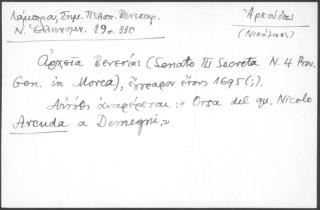 Λάμπρου, Σημ. Πελοπ. Βενετοκρ.
Ν. Ἑλληνομν. 19 σ. 330
Ἀρκούδας
(Νικόλαος)
Ἀρχεῖα Βενετίας (Senato III Secreta N. 4 Prov.
Gen. in Morea), ἔγγραφον ἔτους 1695(;).
Αὐτόθι ἀναφέρεται: « Orsa del qu. Nicolo
Arcuda a Demegni.»